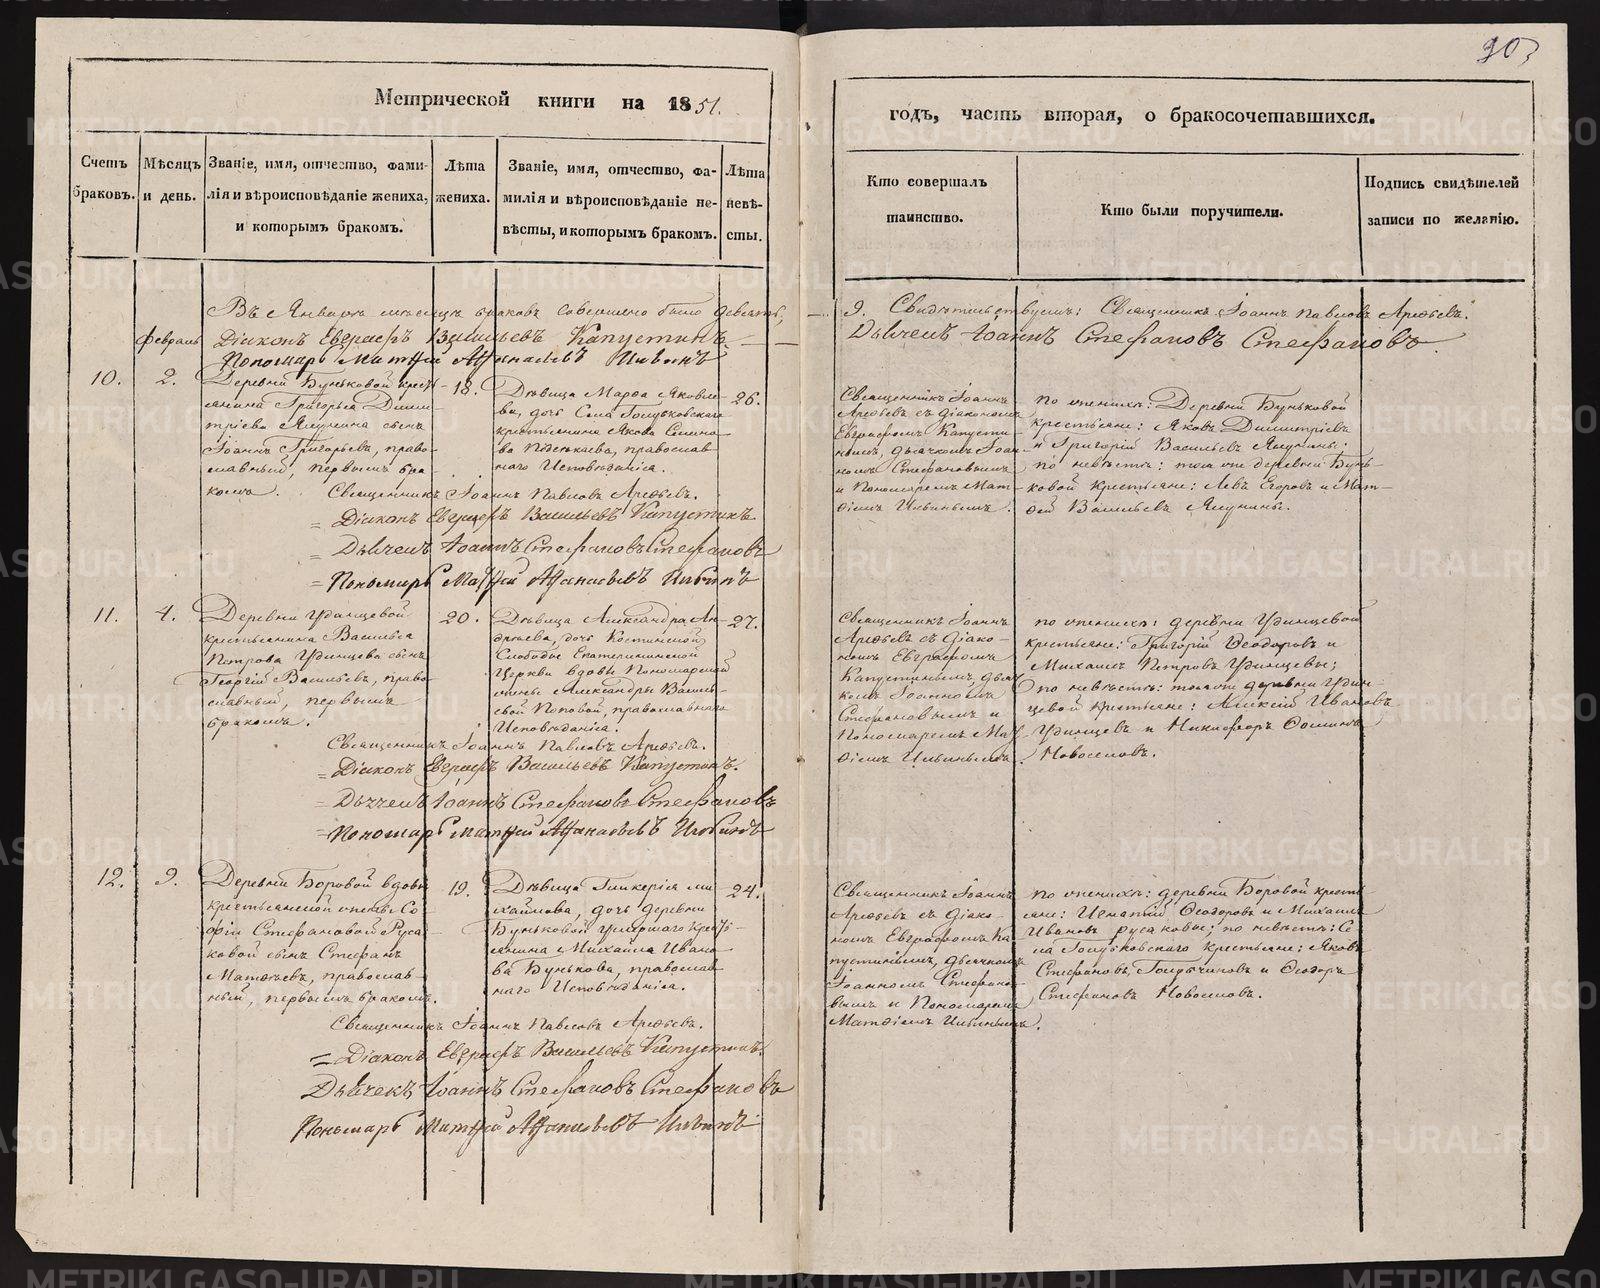 303
Метрической книги на 1851.
годъ, часть вторая, о бракосочетавшихся.
Счетъ браковъ.
Мѣсяцъ и день.
Званіе, имя, отчество, фами-
лія и вѣроисповѣданіе жениха,
и которымъ бракомъ.
Лѣта
жениха.
Званіе, имя, отчество, фа-
милія и вѣроисповѣданіе не-
вѣсты, и которымъ бракомъ.
Лѣта
невѣ-
сты.
Кто совершалъ
таинство.
Кто были поручители.
Подпись свидѣтелей
записи по желанію.
Въ Январѣ мѣсяцѣ браковъ совершено было девять,
9. Свидѣтельствуемъ: Священникъ Іоаннъ Павловъ Арефьевъ.
февраль
Діаконъ Евграфъ Васильевъ Капустинъ.
Дьячекъ Іоаннъ Стефановъ Стефановъ.
Пономарь Матѳій Афанасьевъ Ильинъ
10.
2.
Деревни Буньковой кресть-
янина Григорья Дими-
тріева Ялунина сынъ
Іоаннъ Григорьевъ, право-
славный, первымъ бра-
комъ.
18.
Дѣвица Марѳа Яковле-
ва, дочь Села Голубковскаго
крестьянина Якова Семено-
ва, православ-
наго Исповѣданія.
26.
Священникъ Іоаннъ
Арефьевъ съ діакономъ
Евграфомъ Капусти-
нымъ, дьячкомъ Іоан-
номъ Стефановымъ
и Пономаремъ Мат-
ѳіемъ Ильинымъ.
по женихѣ: Деревни Буньковой
крестьяне: Яковъ Димитріевъ
и Григорій Васильевъ Ялунины;
по невѣстѣ: той же деревни Бунь-
ковой крестьяне: Левъ Егоровъ и Мат-
ѳей Васильевъ Ялунины.
Священникъ Іоаннъ Павловъ Арефьевъ.
= Діаконъ Евграфъ Васильевъ Капустинъ
= Дьячекъ Іоаннъ Стефановъ Стефановъ
= Пономарь Матѳій Афанасьевъ Ильинъ
11.
4.
Деревни Удинцевой
крестьянина Василья
Петрова Удинцева сынъ
Георгій Васильевъ, право-
славный, первымъ
бракомъ.
20.
Дѣвица Александра Ан-
дреева, дочь Костинской
Слободы Екатерининской
Церкви вдовы Пономарской
жены Александры Василь-
евой Поповой, православнаго
Исповѣданія.
27.
Священникъ Іоаннъ
Арефьевъ съ діако-
номъ Евграфомъ
Капустинымъ, дьяч-
комъ Іоанномъ
Стефановымъ и
Пономаремъ Мат-
ѳіемъ Ильинымъ.
по женихѣ: деревни Удинцевой
крестьяне: Григорій Ѳеодоровъ и
Михаилъ Петровъ Удинцевы;
по невѣстѣ: тойже деревни Удин-
цевой крестьяне: Алексій Ивановъ
Удинцевъ и Никифоръ Ѳоминъ
Новоселовъ.
Священникъ Іоаннъ Павловъ Арефьевъ.
= Діаконъ Евграфъ Васильевъ Капустинъ.
= Дьячекъ Іоаннъ Стефановъ Стефановъ
= Пономарь Матѳій Афанасьевъ Ильинъ
12.
9.
Деревни Боровой вдовы
крестьянской жены Со-
фіи Стефановой Руса-
ковой сынъ Стефанъ
Матѳеевъ, православ-
ный, первымъ бракомъ.
19.
Дѣвица Гликерія Ми-
хайлова, дочь деревни
Буньковой умершаго кресть-
янина Михайла Ивано-
ва Бунькова, православ-
наго Исповѣданія.
24.
Священникъ Іоаннъ
Арефьевъ съ діако-
номъ Евграфомъ Ка-
пустинымъ, дьячкомъ
Іоанномъ Стефано-
вымъ и Пономаремъ
Матѳіемъ Ильинымъ.
по женихѣ: деревни Боровой кресть-
яне: Игнатій Ѳеодоровъ и Михаилъ
Ивановъ Русаковы; по невѣстѣ: Се-
ла Голубковскаго крестьяне: Яковъ
Стефановъ и Ѳеодоръ
Стефановъ Новоселовъ.
Священникъ Іоаннъ Павловъ Арефьевъ.
= Діаконъ Евграфъ Васильевъ Капустинъ.
Дьячекъ Іоаннъ Стефановъ Стефановъ
Пономарь Матѳій Афанасьевъ Ильинъ
METRIKI.GASO-URAL.RU